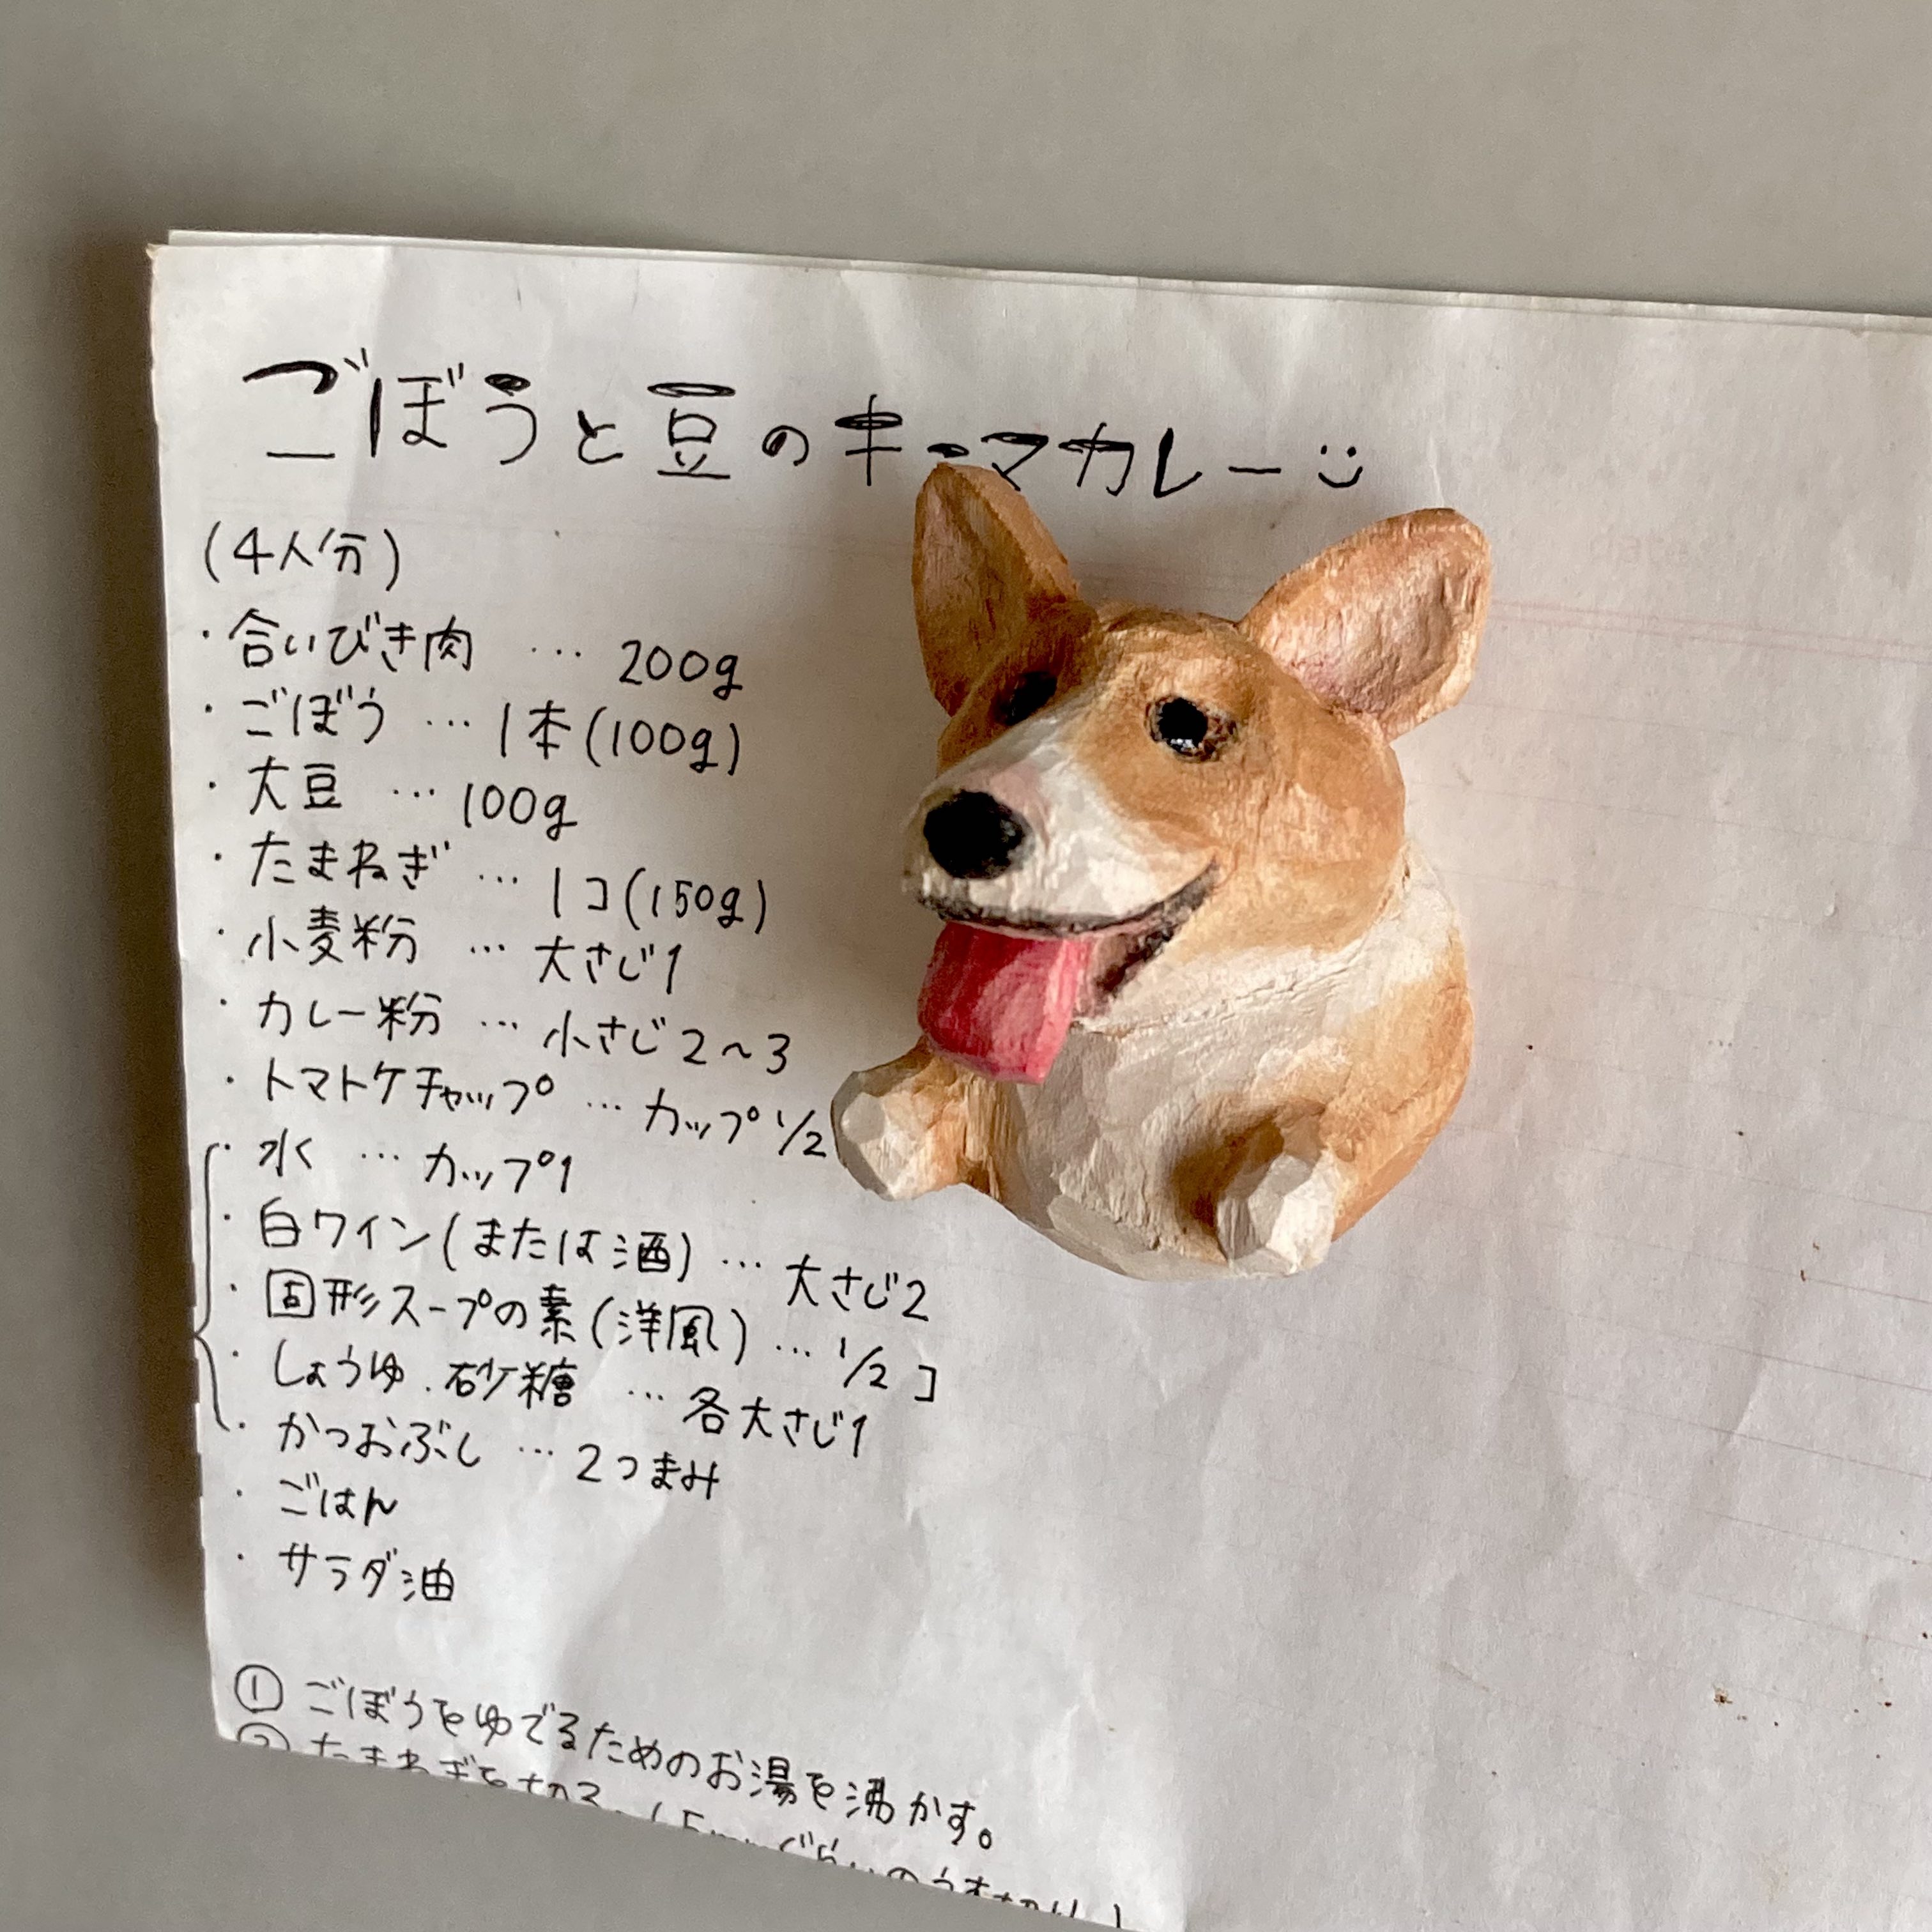 ごぼうと豆のキーマカレー
(4人分)
・合いびき肉 … 200g
・ごぼう … 1本(100g)
・大豆 … 100g
・たまねぎ … 1コ(150g)
・小麦粉 … 大さじ1
・カレー粉 … 小さじ2〜3
・トマトケチャップ … カップ1/2
・水 … カップ1
・白ワイン(または酒) … 大さじ2
・固形スープの素(洋風) … 1/2コ
・しょうゆ.砂糖 … 各大さじ1
・かつおぶし … 2つまみ
・ごはん
・サラダ油
① ごぼうをゆでるためのお湯を沸かす。
② たまねぎを切る